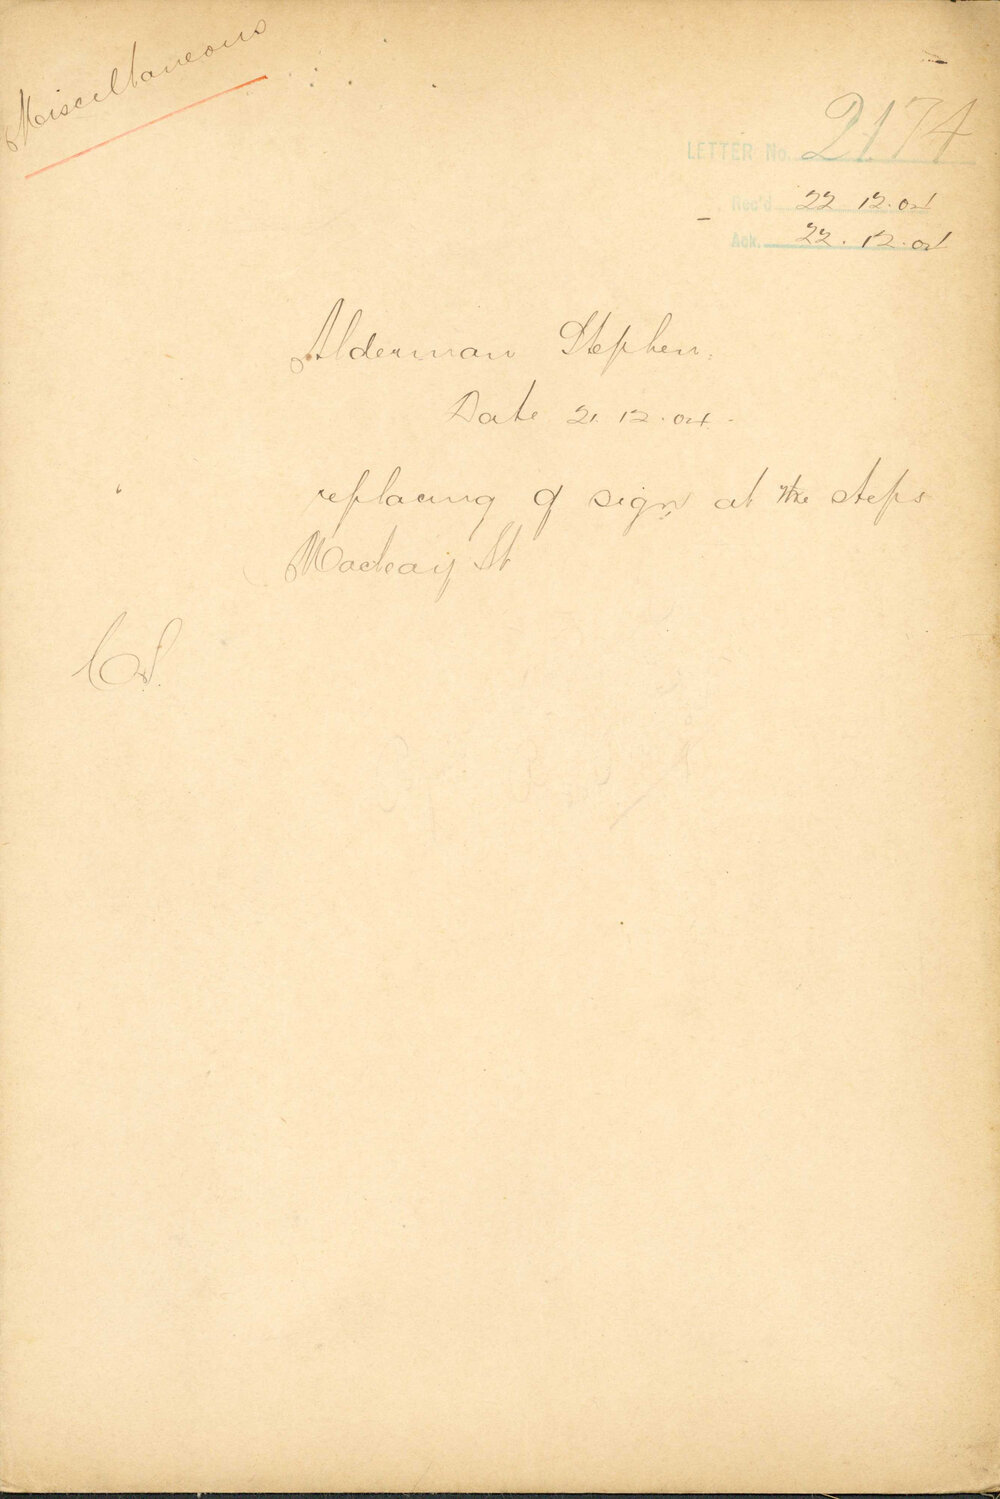 Miscellaneous
LETTER No. 2174
Rec'd 22.12.04
Ack. 22.12.04
Alderman Stephen.
Date 21.12.04.
replacing of sign at the steps
Macleay St